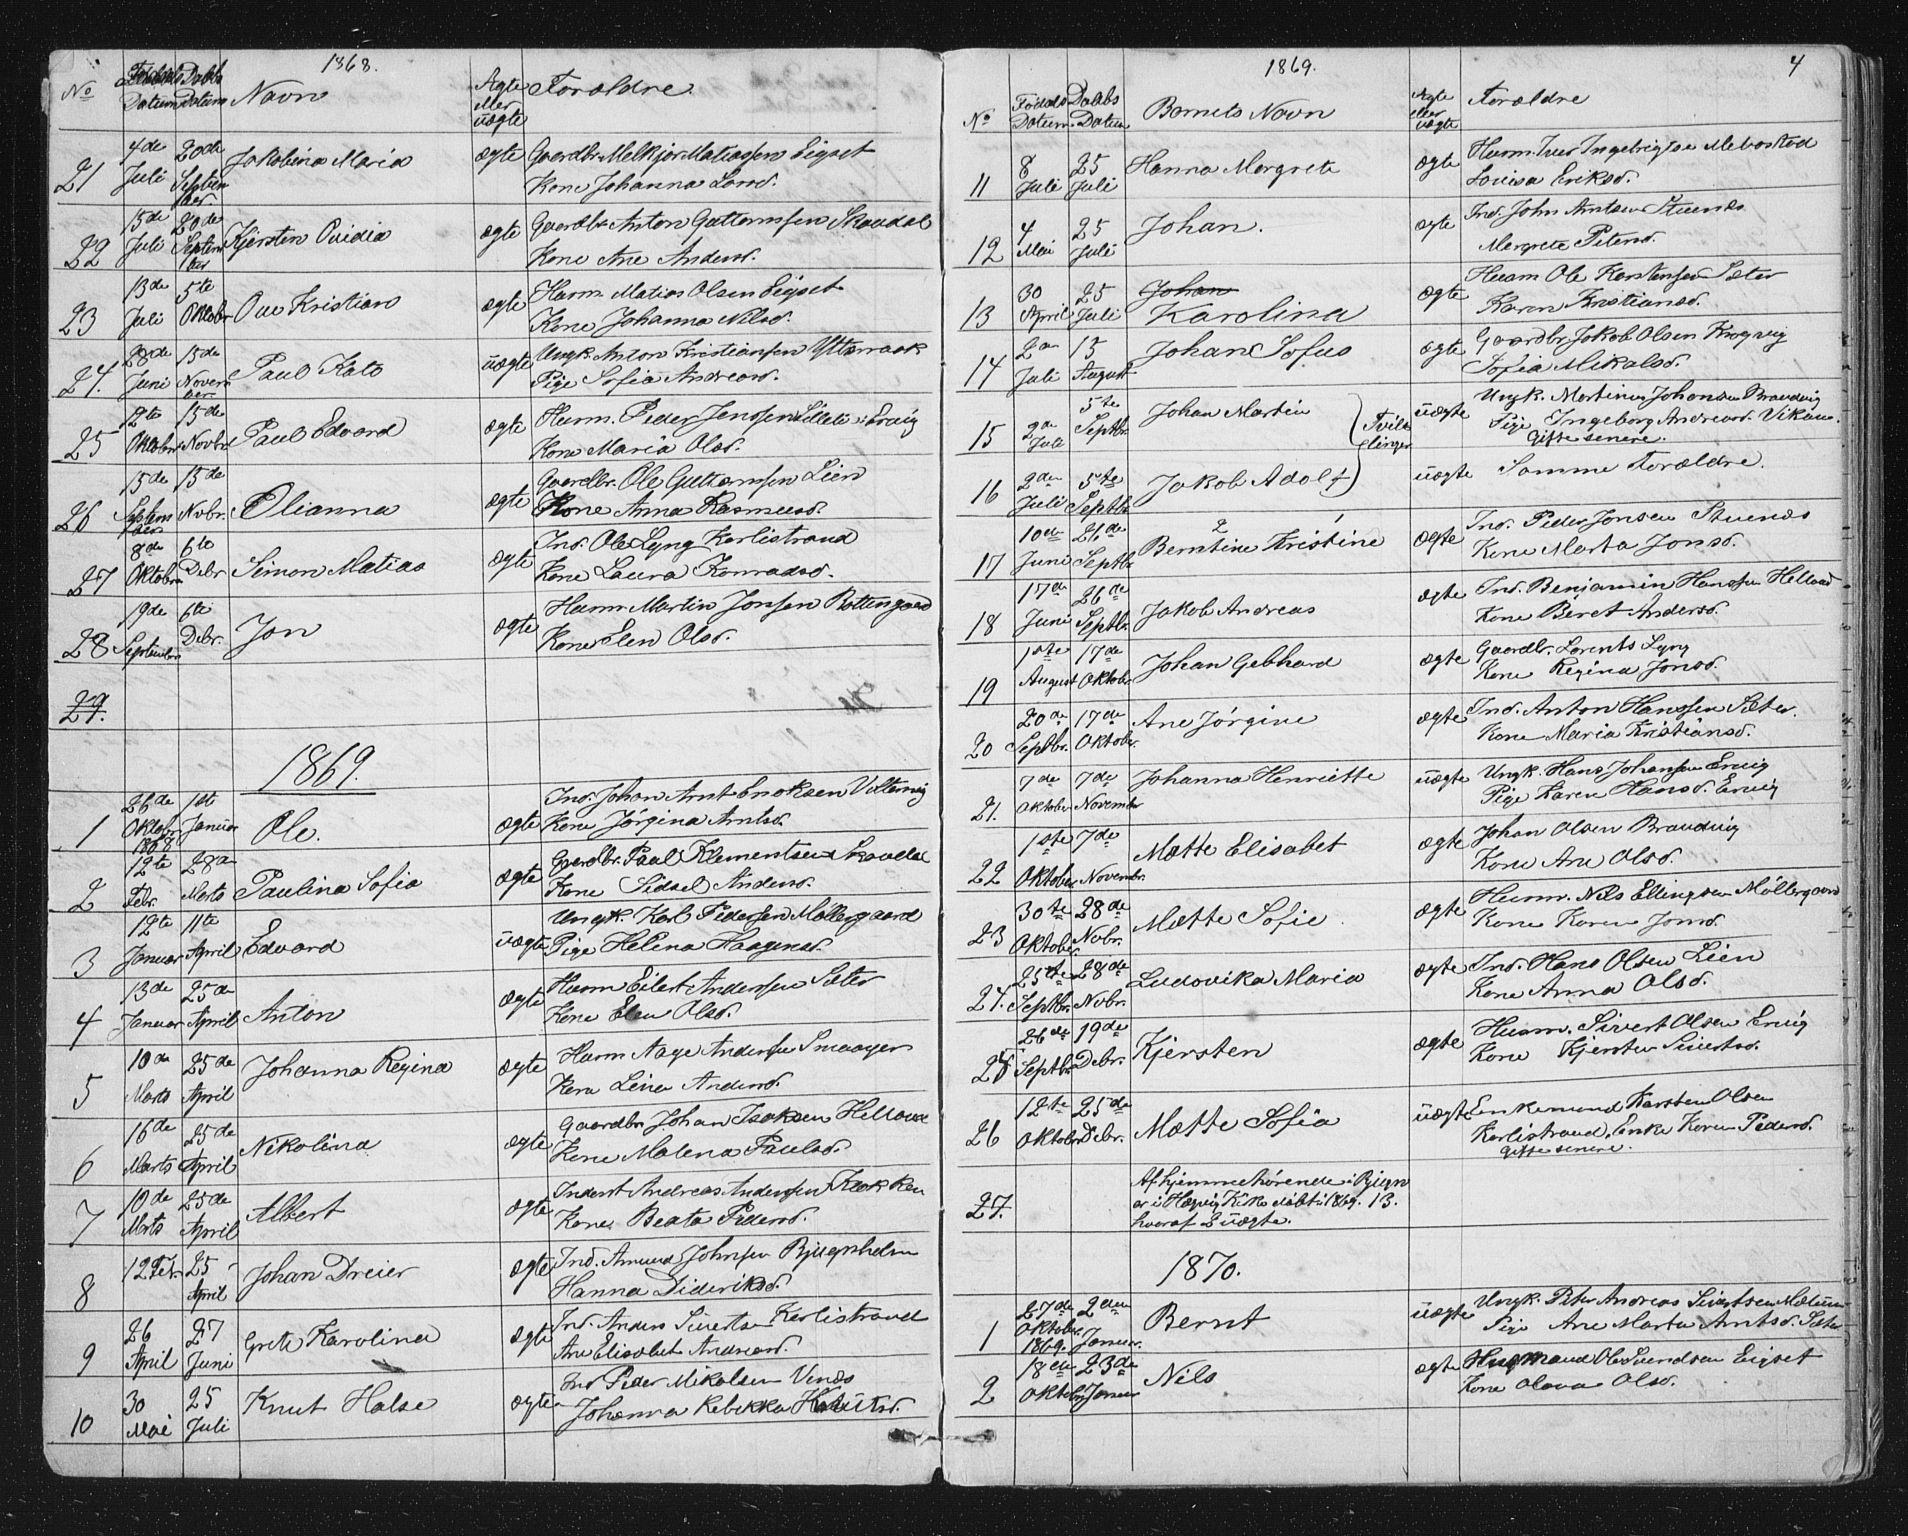 1868.
No Fødsels Datum Daabs Datum Navn Ægte eller uægte Forældre
21 4de Juli 20de September Jakobina Maria ægte Gaardbr. Melkjor Matiassen Eigset
Kone Johanna Larsd.
22 15de Juli 20de September Kjersten Ovidia ægte Gaardbr. Anton Guttormsen Skavdal
Kone Ane Andersd.
23 13de Juli 5te Oktober Ove Kristian ægte Husm. Matias Olsen Eigset
Kone Johanna Nilsd.
24. Juni 15de November Paul Kato uægte Ungk. Anton Kristiansen Ytteraak
Pige Sofia Andreasd.
25 12te Oktober 15de Novbr. Paul Edvard ægte Husm. Peder Jenssen Lilleli i Ervig
Kone Maria Olsd.
26 15de September 15de Nvbr. Olianna ægte Gaardbr. Ole Guttormsen Lien
Kone Anna Rasmusd.
27 8de Oktober 6te Debr Simon Matias ægte Ind. Ole Lyng Karlistrand
Kone Laura Konradsd.
28 19de September 6te Debr. Jon ægte Husm. Martin Jonsen Rottengaard
Kone Elen Olsd.
29.
1869.
1 26de Oktobr. 1868 1st Januar Ole. ægte Ind. Johan Arnt Enoksen Valtervig
Kone Jørgina Arntsd.
2 12te Febr. 28de Marts Paulina Sofia ægte Gaardbr. Paul Klementsen Skavdal
Kone Sidsel Andersd.
3 12te Januar 11te April Edvard uægte Ungk. Karl Pedersen Møllergaard
Pige Helena Haagensd.
4 13de Januar 25de April Anton ægte Husm Eilert Andersen Sæter
Kone Elen Olsd.
5 10de Marts 25de April Johanna Regina ægte Husm Aage Andersen Smaager
Kone Lina Andersd.
6 16de Marts 25de April Nikolina ægte Gaardbr. Johan Isaksen Hellavd
Kone Malena Paulsd.
7 10de Marts 25de April Albert ægte Inderst Andreas Andersen Klokken
Kone Beata Pedersd.
8 12 Febr. 25 April Johan Dreier ægte Ind. Amund Johnsen Bjugnholm
Hanna Dideriksd.
9 26 April 27 Juni Grete Karolina ægte Ind. Anders Sivertsen Karlistrand
Ane Elisabet Andreasd.
10 30 Mai 25 Juli Knut Halse ægte Ind Peder Mikalsen Vinæs
Johanna Rebekka Knutsd.
1869. 4
No Fødsels Datum. Daabs Datum Barnets Navn Ægte eller uægte Forældre
11 8 Juli 25 Juli Hanna Margrete ægte Husm. Iver Ingebrigtsen Mebostad
Lovisa Eriksd.
12 4 Mai 25 Juli Johan. ægte Ind. John Arntsen Stuenæs
Margrete Petersd.
13 30 April 25 Juli Johan Karolina ægte Husm Ole Karstensen Sæter
Karen Kristiansd.
14 2den Juli 15 August Johan Sofus ægte Gaardbr. Jakob Olsen Krogvig
Sofia Mikalsd.
15 2de Juli 5te Septbr. Johan Martin Tvillinger uægte Ungk. Martinus Johansen Brandvig
Pige Ingeborg Andreasd. Vikan
Gifte senere.
16 2den Juli 5te Septbr. Jakob Adolf uægte Samme Forældre.
17 10de Juni 26de Septbr. 2 1
Berntine Kristine ægte Ind. Peder Jonsen Stuenæs
Kone Marta Jonsd.
18 17de Juni 26de Septbr. Jakob Andreas ægte Ind. Benjamin Hanssen Hellavd
Kone Beret Andersd.
19 1ste August 17de Oktobr. Johan Gebhard ægte Gaardbr. Lorents Lyng
Kone Regina Jonsd.
20 20de Septbr. 17de Oktober. Ane Jørgine ægte Ind. Anton Hanssen Sæter.
Kone Maria Kristiansd.
21. 7de Oktober 7de November Johanna Henriette uægte Ungk. Hans Johansen Ervig
Pige Karen Hansd. Ervig
22 1ste Oktober 7de Novembr. Mætte Elisabet ægte Johan Olsen Brandvig
Kone Ane Olsd.
23 30te Oktober. 28de Nvbr. Mætte Sofie ægte Husm. Nils Ellingsen Møllergaard
Kone Karen Jonsd.
24. 25te Septbr. 28de Nvbr. Ludovika Maria ægte Ind. Hans Olsen Lien
Kone Anna Olsd.
25 26de Septbr. 19de Debr. Kjersten ægte Husm. Sivert Olsen Ervig
Kone Kjersten Sivertsd.
26 12te Oktober 25de Debr. Mætte Sofia uægte Enkemand Karsten Olsen
Karlistrand, Enke Karen Pedersd.
gifte senere.
27. Af hjemmehørende i Bjugn
er i Hægvig Kirke døbt i 1869. 13.
hvoraf 2 uægte.
1870.
1 27de Oktober 1869 2den Januar. Bernt uægte Ungk. Peter Andreas Sivertsen Mælum
Pige Ane Marta Arntsd. Sæter
2 18de Oktobr. 23de Januar Nils ægte Husmand Ole Svendsen Eigset
Kone Olava Olsd.